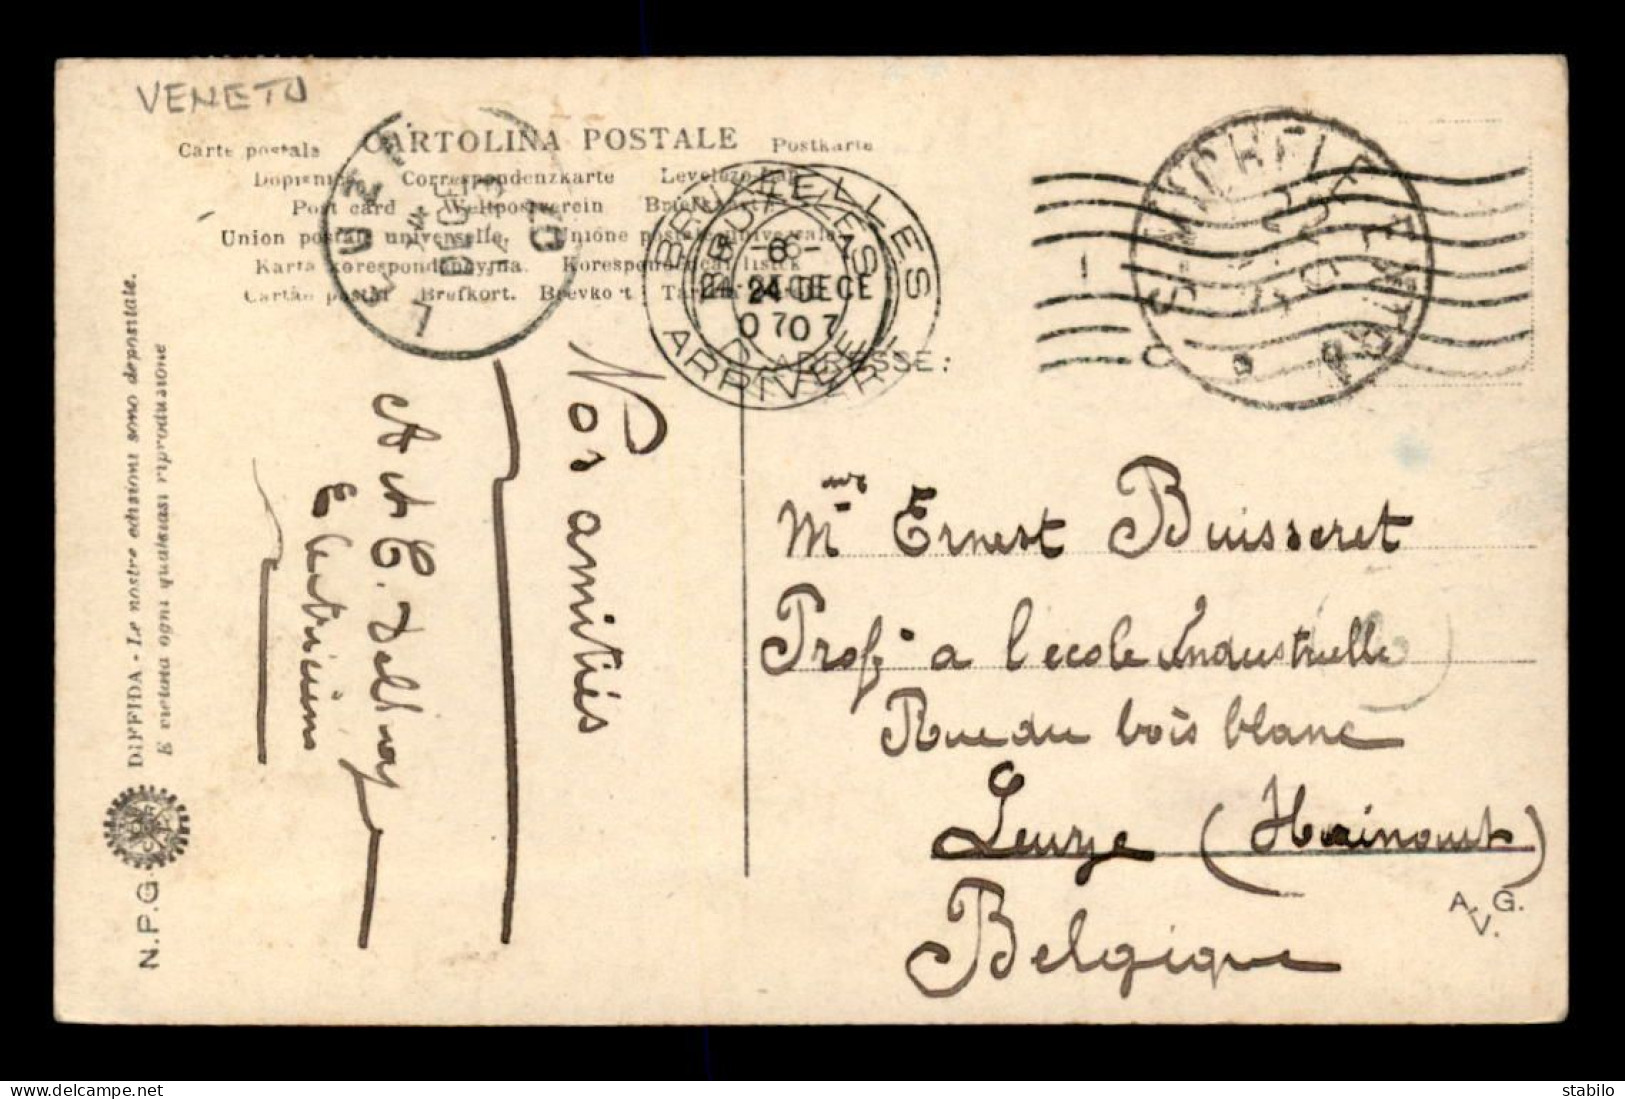 VENETO
CARTOLINA POSTALE
Carte postale
Postkarte
Correspondenzkarte
Post card Weltpostverein Briefkaart
Union postale universelle. Unione postale universale
Karta korespondencyjna. Korespondenční lístek
Brefkort. Brevkort
BRUXELLES
24 DECE
07
ARRIVEE
ADRESSE:
S. MICHELE EXTRA
LEUZE
DIFFIDA - Le nostre edizioni sono depositate.
E vietata ogni qualsiasi riproduzione
N.P.G.
Nos amitiés
A et C. Delhay
Mr Ernest Buisseret
Prof. a l'ecole industrielle
Rue du bois blanc
Leuze (Hainaut)
Belgique
A.V.G.
stabilo